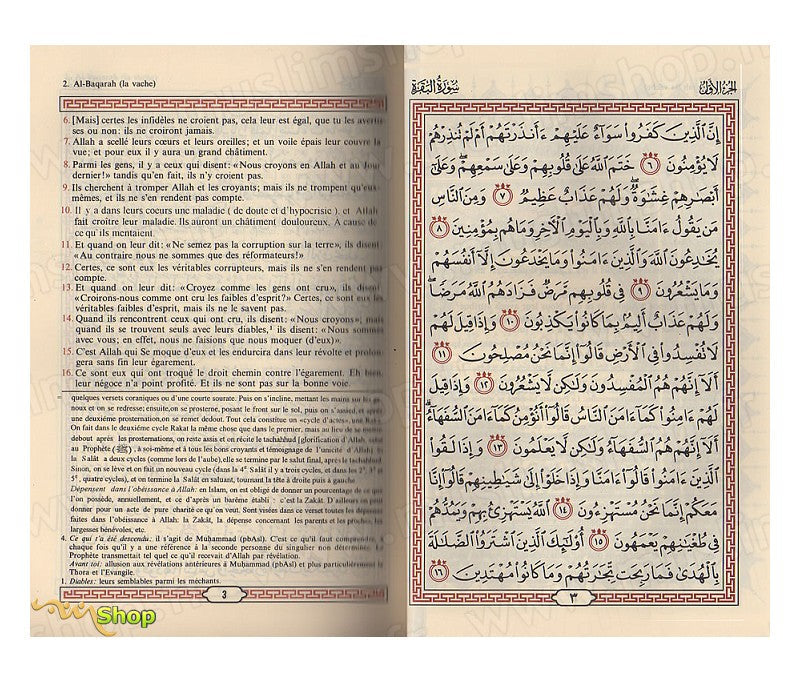 2. Al-Baqarah (la vache)
6. [Mais] certes les infidèles ne croient pas, cela leur est égal, que tu les avertis-
ses ou non: ils ne croiront jamais.
7. Allah a scellé leurs cœurs et leurs oreilles; et un voile épais leur couvre la
vue; et pour eux il y aura un grand châtiment.
8. Parmi les gens, il y a ceux qui disent: «Nous croyons en Allah et au Jour
dernier!» tandis qu'en fait, ils n'y croient pas.
9. Ils cherchent à tromper Allah et les croyants; mais ils ne trompent qu'eux-
mêmes, et ils ne s'en rendent pas compte.
10. Il y a dans leurs cœurs une maladie ( de doute et d'hypocrisie ). et Allah
fait croître leur maladie. Ils auront un châtiment douloureux. A cause de
ce qu'ils mentaient.
11. Et quand on leur dit: «Ne semez pas la corruption sur la terre», ils disent
«Au contraire nous ne sommes que des réformateurs!»
12. Certes, ce sont eux les véritables corrupteurs, mais ils ne s'en rendent pas
compte.
13. Et quand on leur dit: «Croyez comme les gens ont cru», ils disent
«Croirons-nous comme ont cru les faibles d'esprit?» Certes, ce sont eux les
véritables faibles d'esprit, mais ils ne le savent pas.
14. Quand ils rencontrent ceux qui ont cru, ils disent: «Nous croyons»; mais
quand ils se trouvent seuls avec leurs diables,¹ ils disent: «Nous sommes
avec vous; en effet, nous ne faisions que nous moquer (d'eux)».
15. C'est Allah qui Se moque d'eux et les endurcira dans leur révolte et prolon-
gera sans fin leur égarement.
16. Ce sont eux qui ont troqué le droit chemin contre l'égarement. Eh bien,
leur négoce n'a point profité. Et ils ne sont pas sur la bonne voie.
= quelques versets coraniques ou d'une courte sourate. Puis on s'incline, mettant les mains sur les ge-
noux et on se redresse; ensuite,on se prosterne, posant le front sur le sol, puis on s'assied, et après
une deuxième prosternation,on se remet debout. Tout cela constitue un «cycle d'actes», une Rakʿa
On fait dans le deuxième cycle Rakat la même chose que dans le premier, mais au lieu de se mettre
debout après les prosternations, on reste assis et on récite le tachahhud [glorification d'Allah, salut
au Prophète (ﷺ), à soi-même et à tous les bons croyants et témoignage de l'unicité d'Allah] Si
la Salât a deux cycles (comme lors de l'aube),elle se termine par le salut final, après le tachahhud.
Sinon, on se lève et on fait un nouveau cycle (dans la 4ᵉ Salât il y a trois cycles, et dans les 2ᵉ, 3ᵉ et
5ᵉ, quatre cycles), et on termine la Salât en saluant, tournant la tête à droite puis à gauche
Dépensent dans l'obéissance à Allah: en Islam, on est obligé de donner un pourcentage de ce que
l'on possède, annuellement, et ce d'après un barème établi : c'est la Zakât. D'ailleurs on peut
donner pour un acte de pure charité ce qu'on veut. Sont visées dans ce verset toutes les dépenses
faites dans l'obéissance à Allah: la Zakât, la dépense concernant les parents et les proches, les
largesses bénévoles, etc.
4. Ce qui t'a été descendu: il s'agit de Muḥammad (pbAsl). C'est ce qu'il faut comprendre
chaque fois qu'il y a une référence à la seconde personne du singulier non déterminée. Le
Prophète transmettait tel quel ce qu'il recevait d'Allah par révélation.
Avant toi: allusion aux révélations antérieures à Muḥammad (pbAsl) et plus particulièrement la
Thora et l'Evangile.
1. Diables: leurs semblables parmi les méchants.
3
Shop
سُورَةُ البَقَرَةِ
الجزء الأول
إِنَّ ٱلَّذِينَ كَفَرُوا۟ سَوَآءٌ عَلَيْهِمْ ءَأَنذَرْتَهُمْ أَمْ لَمْ تُنذِرْهُمْ
لَا يُؤْمِنُونَ ٦ خَتَمَ ٱللَّهُ عَلَىٰ قُلُوبِهِمْ وَعَلَىٰ سَمْعِهِمْ ۖ وَعَلَىٰٓ
أَبْصَٰرِهِمْ غِشَٰوَةٌ ۖ وَلَهُمْ عَذَابٌ عَظِيمٌ ٧ وَمِنَ ٱلنَّاسِ
مَن يَقُولُ ءَامَنَّا بِٱللَّهِ وَبِٱلْيَوْمِ ٱلْءَاخِرِ وَمَا هُم بِمُؤْمِنِينَ ٨
يُخَٰدِعُونَ ٱللَّهَ وَٱلَّذِينَ ءَامَنُوا۟ وَمَا يَخْدَعُونَ إِلَّآ أَنفُسَهُمْ
وَمَا يَشْعُرُونَ ٩ فِى قُلُوبِهِم مَّرَضٌ فَزَادَهُمُ ٱللَّهُ مَرَضًا ۖ
وَلَهُمْ عَذَابٌ أَلِيمٌۢ بِمَا كَانُوا۟ يَكْذِبُونَ ١٠ وَإِذَا قِيلَ لَهُمْ
لَا تُفْسِدُوا۟ فِى ٱلْأَرْضِ قَالُوٓا۟ إِنَّمَا نَحْنُ مُصْلِحُونَ ١١
أَلَآ إِنَّهُمْ هُمُ ٱلْمُفْسِدُونَ وَلَٰكِن لَّا يَشْعُرُونَ ١٢ وَإِذَا قِيلَ
لَهُمْ ءَامِنُوا۟ كَمَآ ءَامَنَ ٱلنَّاسُ قَالُوٓا۟ أَنُؤْمِنُ كَمَآ ءَامَنَ ٱلسُّفَهَآءُ ۗ
أَلَآ إِنَّهُمْ هُمُ ٱلسُّفَهَآءُ وَلَٰكِن لَّا يَعْلَمُونَ ١٣ وَإِذَا لَقُوا۟
ٱلَّذِينَ ءَامَنُوا۟ قَالُوٓا۟ ءَامَنَّا وَإِذَا خَلَوْا۟ إِلَىٰ شَيَٰطِينِهِمْ قَالُوٓا۟ إِنَّا
مَعَكُمْ إِنَّمَا نَحْنُ مُسْتَهْزِءُونَ ١٤ ٱللَّهُ يَسْتَهْزِئُ بِهِمْ وَيَمُدُّهُمْ
فِى طُغْيَٰنِهِمْ يَعْمَهُونَ ١٥ أُو۟لَٰٓئِكَ ٱلَّذِينَ ٱشْتَرَوُا۟ ٱلضَّلَٰلَةَ
بِٱلْهُدَىٰ فَمَا رَبِحَت تِّجَٰرَتُهُمْ وَمَا كَانُوا۟ مُهْتَدِينَ ١٦
٣